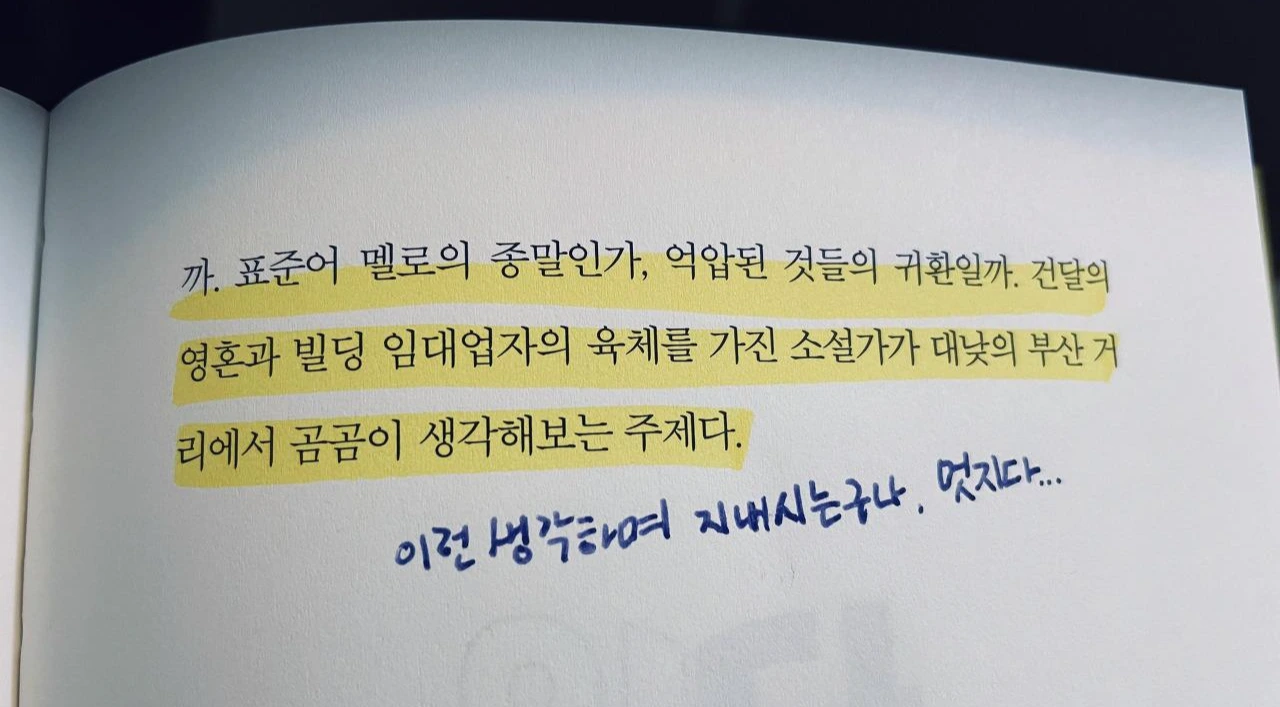 까. 표준어 멜로의 종말인가, 억압된 것들의 귀환일까. 건달의
영혼과 빌딩 임대업자의 육체를 가진 소설가가 대낮의 부산 거
리에서 곰곰이 생각해보는 주제다.
이런 생각하며 지내시는구나, 멋지다...